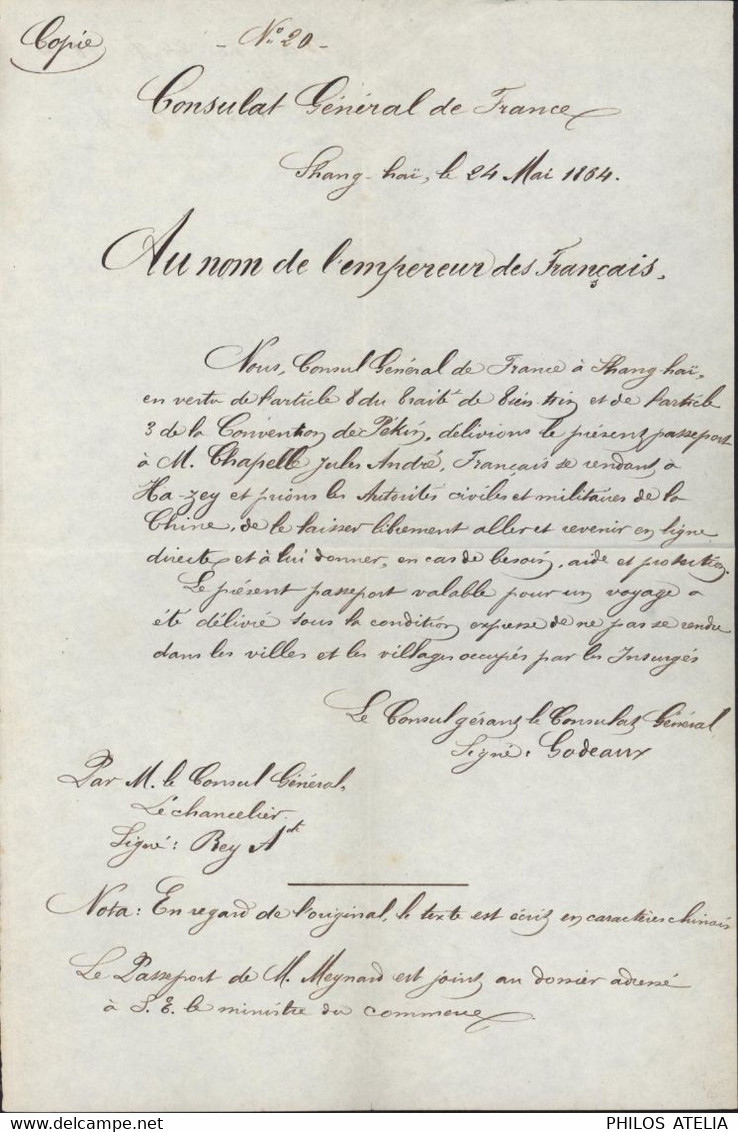 Copie
- N° 20 -
Consulat Général de France
Shang-haï, le 24 Mai 1864.
Au nom de l'empereur des Français.
Nous, Consul Général de France à Shang-haï,
en vertu de l'article 8 du Traité de Tien-tsin et de l'article
3 de la Convention de Pékin, délivrons le présent passeport
à M. Chapelle Jules André, Français se rendant à
Ha-zey et prions les Autorités civiles et militaires de la
Chine, de le laisser librement aller et revenir en ligne
directe et à lui donner, en cas de besoin, aide et protection.
Le présent passeport valable pour un voyage a
été délivré sous la condition expresse de ne pas se rendre
dans les villes et les villages occupés par les Insurgés
Le Consul gérant le Consulat Général
Signé: Godeaux
Par M. le Consul Général,
Le chancelier.
Signé: Rey
Nota: En regard de l'original, le texte est écrit en caractères chinois
Le Passeport de M. Meynard est joint au dossier adressé
à S. E. le ministre du commerce.
PHILOS ATELIA